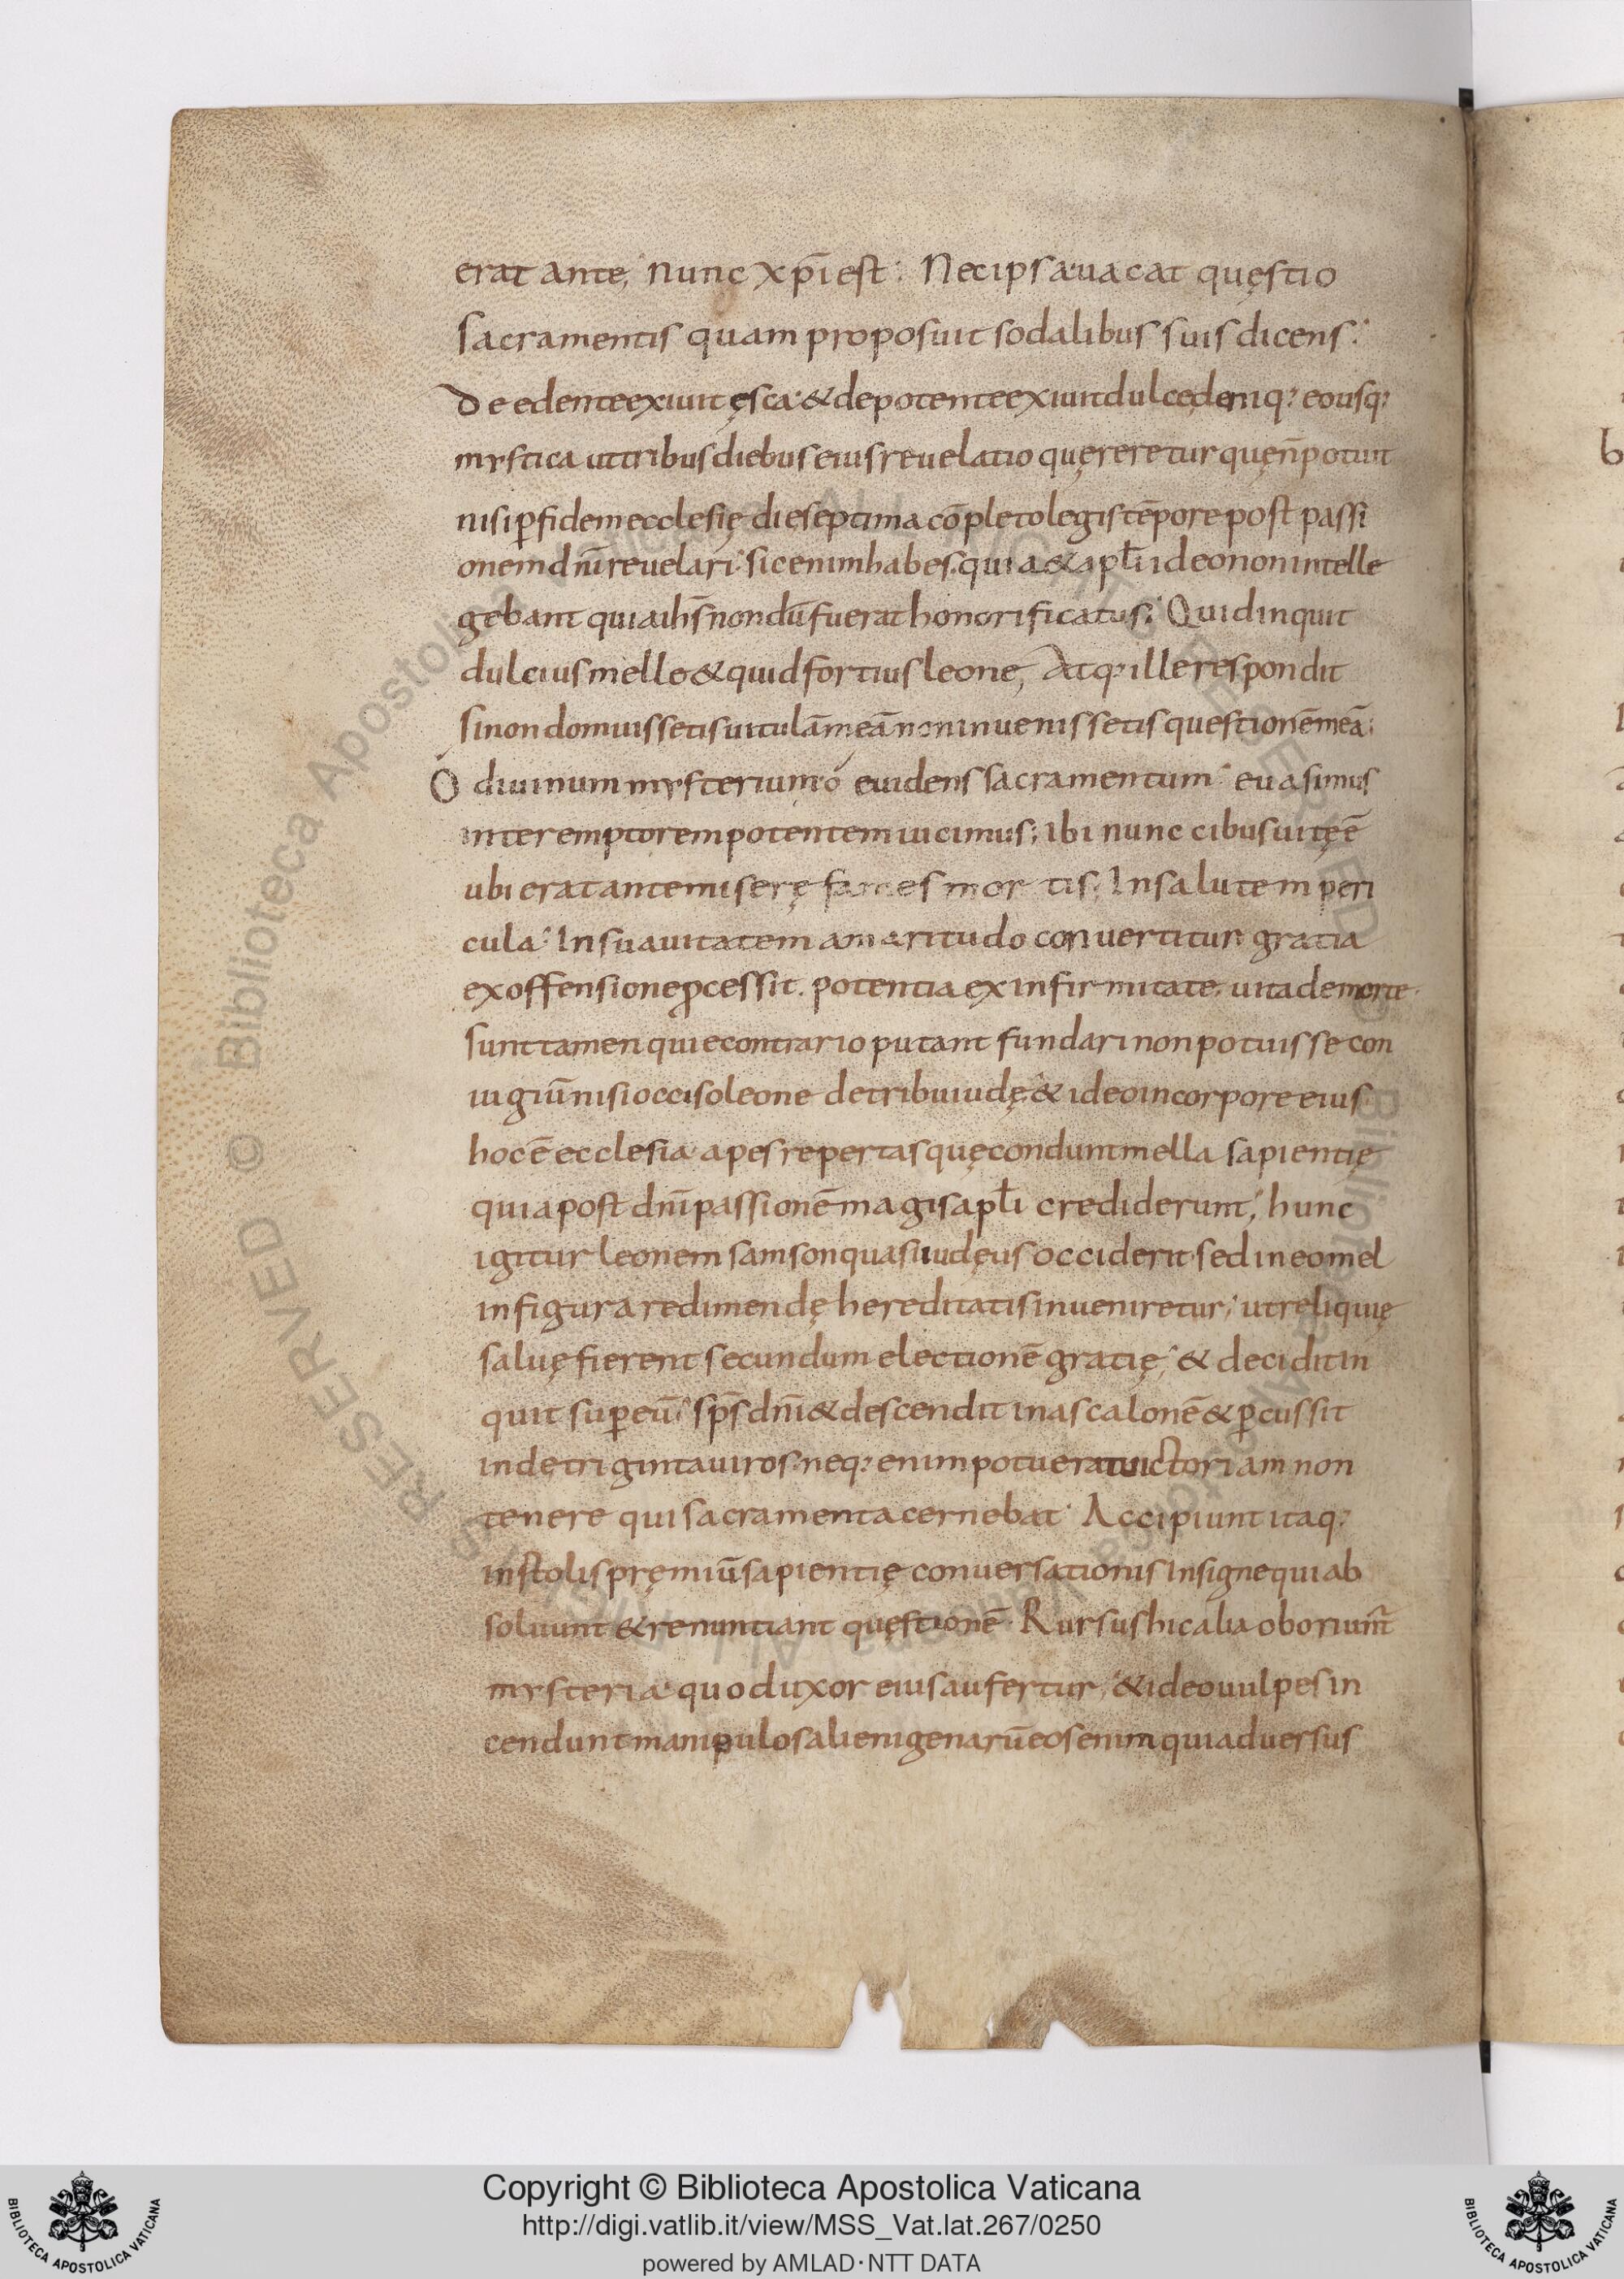 erat ante, nunc xp̄i est. Nec ipsa uacat quęstio
sacramentis quam proposuit sodalibus suis dicens.
De edente exiuit ęsca & de potente exiuit dulcędo deniq; eousq;
mystica ut tribus diebus eius reuelatio quęreretur quę n̄ potuit
nisi ꝑ fidem ecclesię die septima cōpleto legis tēpore post passi
onem dn̄i reuelari. sic enim habes. quia & apłi ideo non intelle
gebant quia ihs̄ nondū fuerat honorificatus. Quid inquit
dulcius melle & quid fortius leone, Atq; ille respondit
si non domuissetis uitulā meā non inuenissetis questionē meā;
O diuinum mysterium o euidens sacramentum. euasimus
interemptorem potentem uicimus; ibi nunc cibus uitę ē
ubi erat ante miserę fames mortis; In salutem peri
cula. In suauitatem amaritudo conuertitur gratia
ex offensione ꝓcessit. potentia ex infirmitate. uita de morte.
sunt tamen qui e contrario putant fundari non potuisse con
iugiū nisi occiso leone de tribu iudę. & ideo in corpore eius
hoc ē ecclesia apes repertas quę condunt mella sapientię
quia post dn̄i passionē magis apłi crediderunt, hunc
igitur leonem samson quasi iudęus occiderit sed in eo mel
in figura redimendę hereditatis inueniretur, ut reliquię
saluę fierent secundum electionē gratię, & decidit in
quit super eū sps̄ dn̄i & descendit in ascalonē & ꝑcussit
inde triginta uiros. neq; enim potuerat uictoriam non
tenere qui sacramenta cernebat. Accipiunt itaq;
in stolis pręmiū sapientię conuersationis insigne qui ab
soluunt & renuntiant quęstionē. Rursus hic alia oboriunt̄
mysteria quod uxor eius aufertur, & ideo uulpes in
cendunt manipulos alienigenarū eos enim qui aduersus
b
© Biblioteca Apostolica Vaticana ALL RIGHTS RESERVED
Copyright © Biblioteca Apostolica Vaticana
http://digi.vatlib.it/view/MSS_Vat.lat.267/0250
powered by AMLAD·NTT DATA
BIBLIOTECA APOSTOLICA VATICANA
BIBLIOTECA APOSTOLICA VATICANA